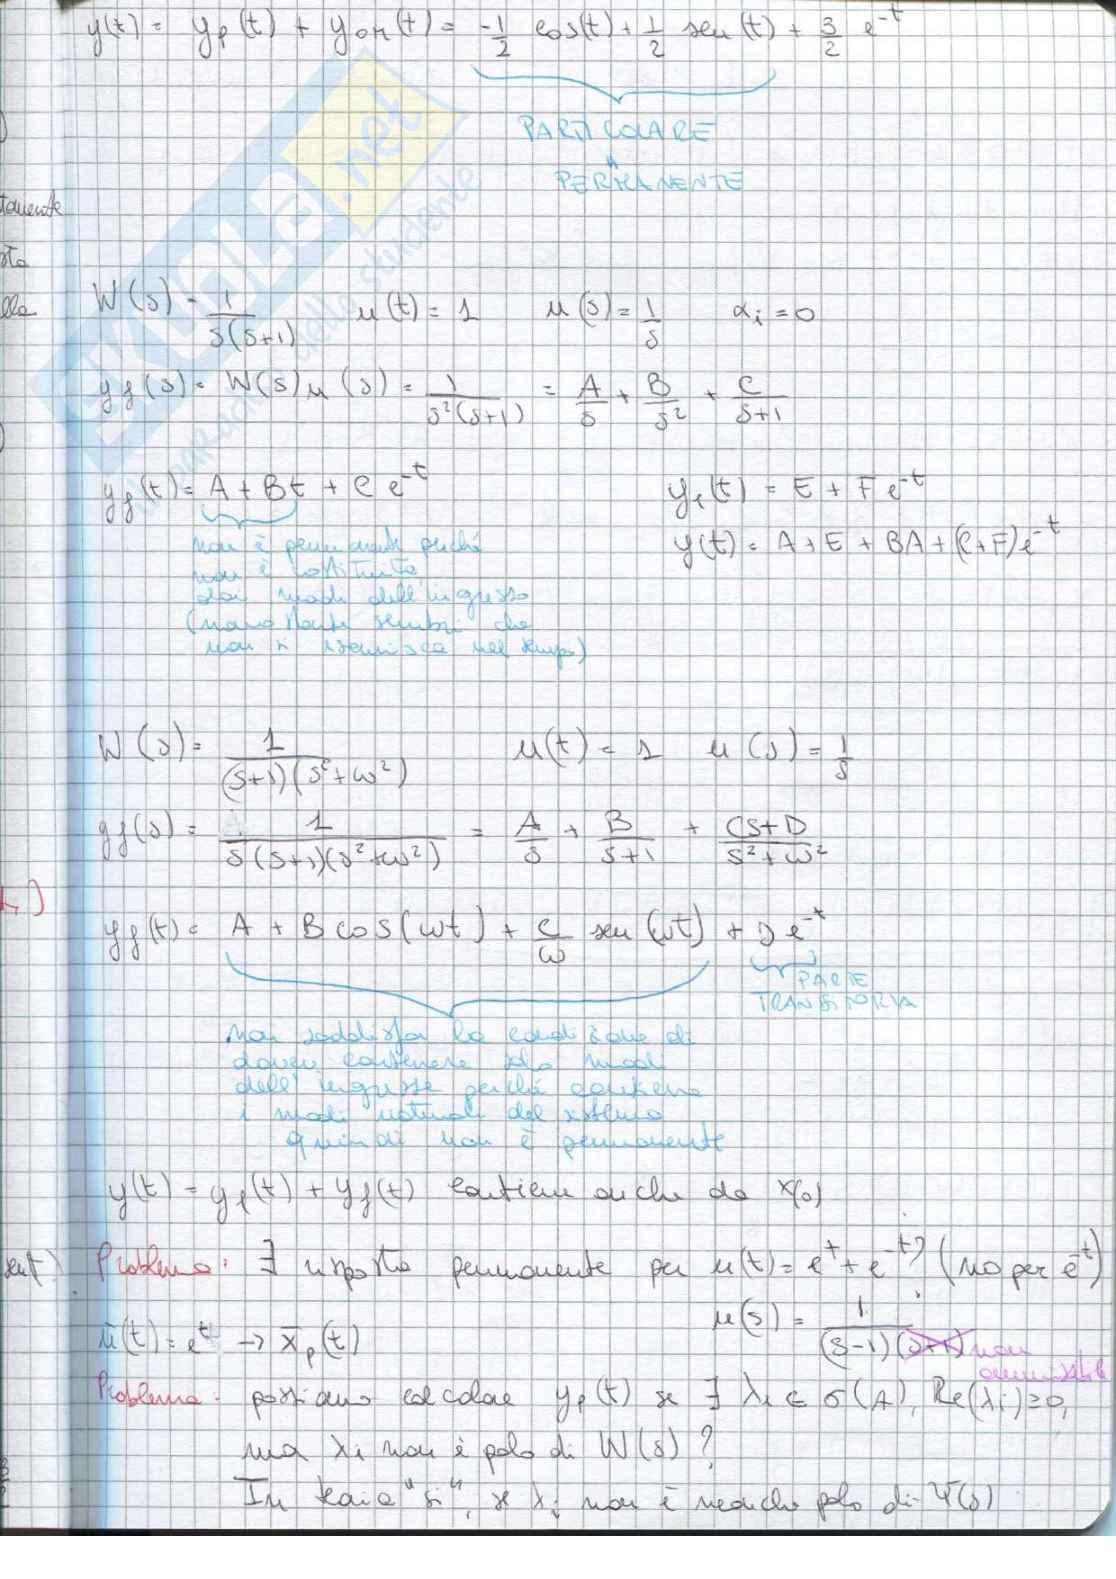 y(t) = yp(t) + yom(t) = -1/2 cos(t) + 1/2 sen(t) + 3/2 e^-t
PARTICOLARE
"
PERMANENTE
SKUOLA.net
W(s) = 1/(s(s+1))   u(t) = 1   u(s) = 1/s   αi = 0
yf(s) = W(s)u(s) = 1/(s²(s+1)) = A/s + B/s² + C/(s+1)
yf(t) = A + Bt + C e^-t   yℓ(t) = E + F e^-t
y(t) = A + E + BA + (C+F)e^-t
non è permanente perché
non è costituito
dai modi dell'ingresso
(nonostante sembri che
non si esaurisca nel tempo)
W(s) = 1/((s+1)(s²+ω²))   u(t) = 1   u(s) = 1/s
yf(s) = 1/(s(s+1)(s²+ω²)) = A/s + B/(s+1) + (Cs+D)/(s²+ω²)
yf(t) = A + B cos(ωt) + C/ω sen(ωt) + D e^-t
PARTE
TRANSITORIA
Non soddisfa la condizione di
dover contenere solo modi
dell'ingresso perché contiene
i modi naturali del sistema
quindi non è permanente
y(t) = yℓ(t) + yf(t) contiene anche da x(0)
Problema: ∃ risposta permanente per u(t) = e^t + e^-t? (No per e^-t)
ū(t) = e^t → x̄p(t)   u(s) = 1/((s-1)(s+1)) non
ammissibile
Problema: possiamo calcolare yp(t) se ∃ λi ∈ σ(A), Re(λi) ≥ 0,
ma λi non è polo di W(s)?
In teoria "si", se λi non è neanche polo di Ψ(s)